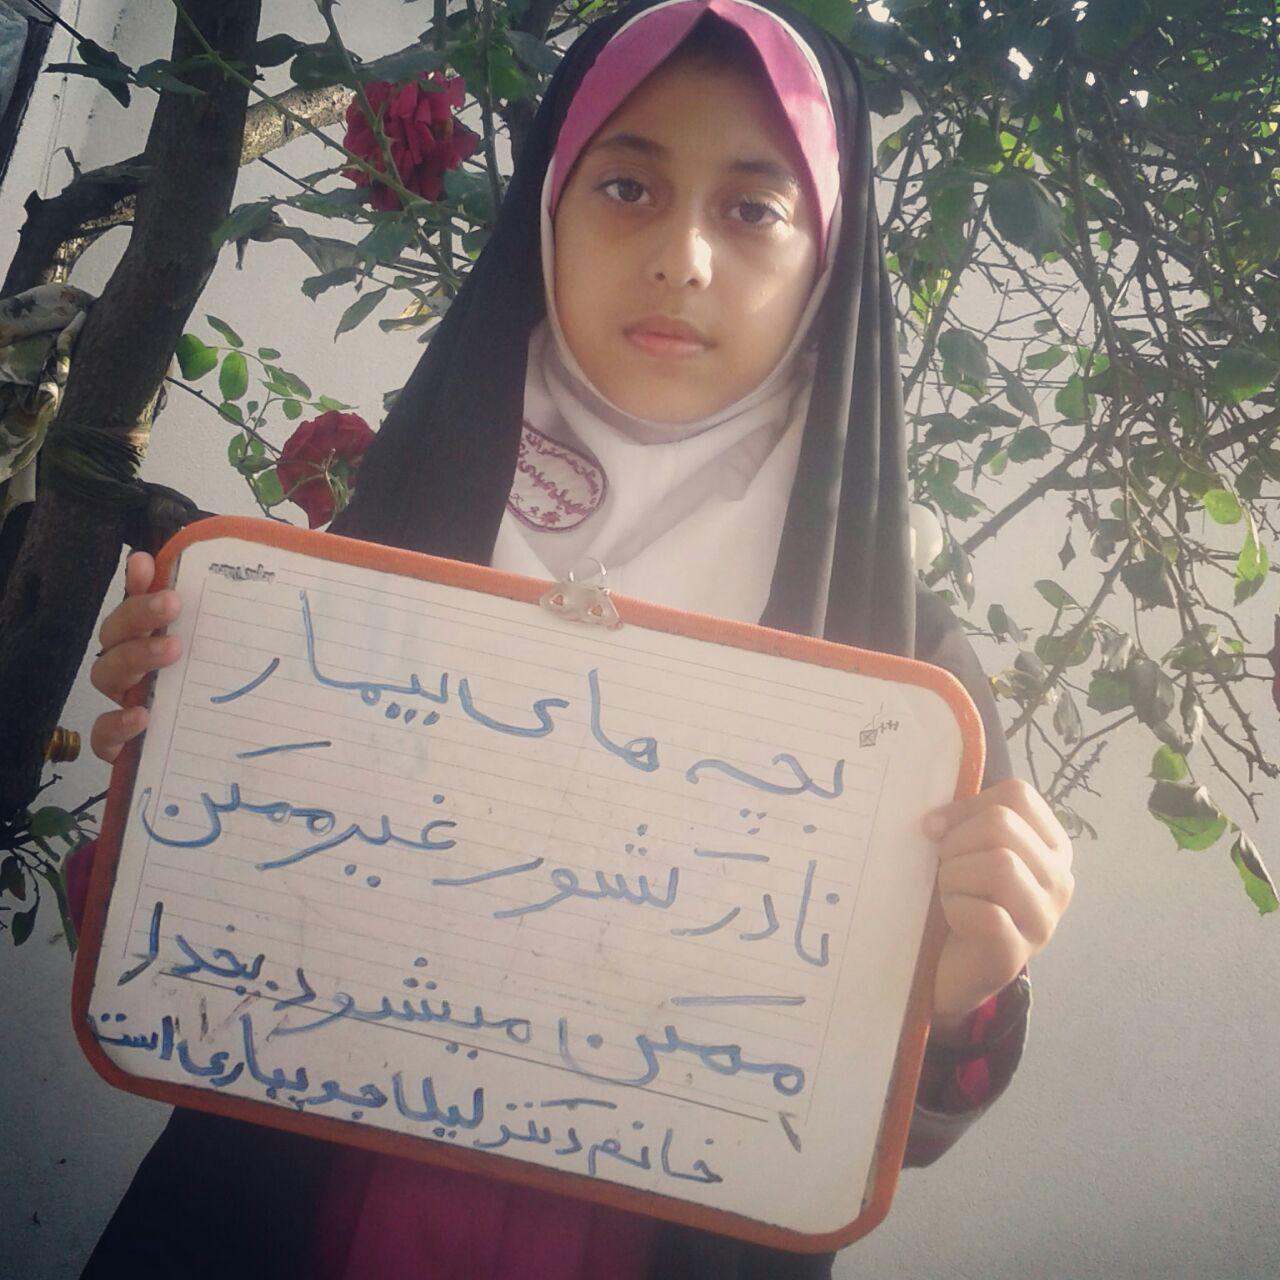 بچه های بیمار
نادر کشور غیرممکن
ممکن میشود بخدا
خانم دکتر لیلا جویباری است